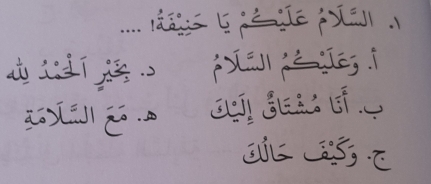 ١. السَّلَامُ عَلَيْكُمْ يَا حَنِيْفَةُ! ....
أ. وَعَلَيْكُمُ السَّلَامُ د. بِخَيْرٍ اَلْحَمْدُ لِلّٰه
ب. أَنَا مُشْتَاقٌ إِلَيْكَ ه. مَعَ السَّلَامَةِ
ج. وَكَيْفَ حَالُكَ